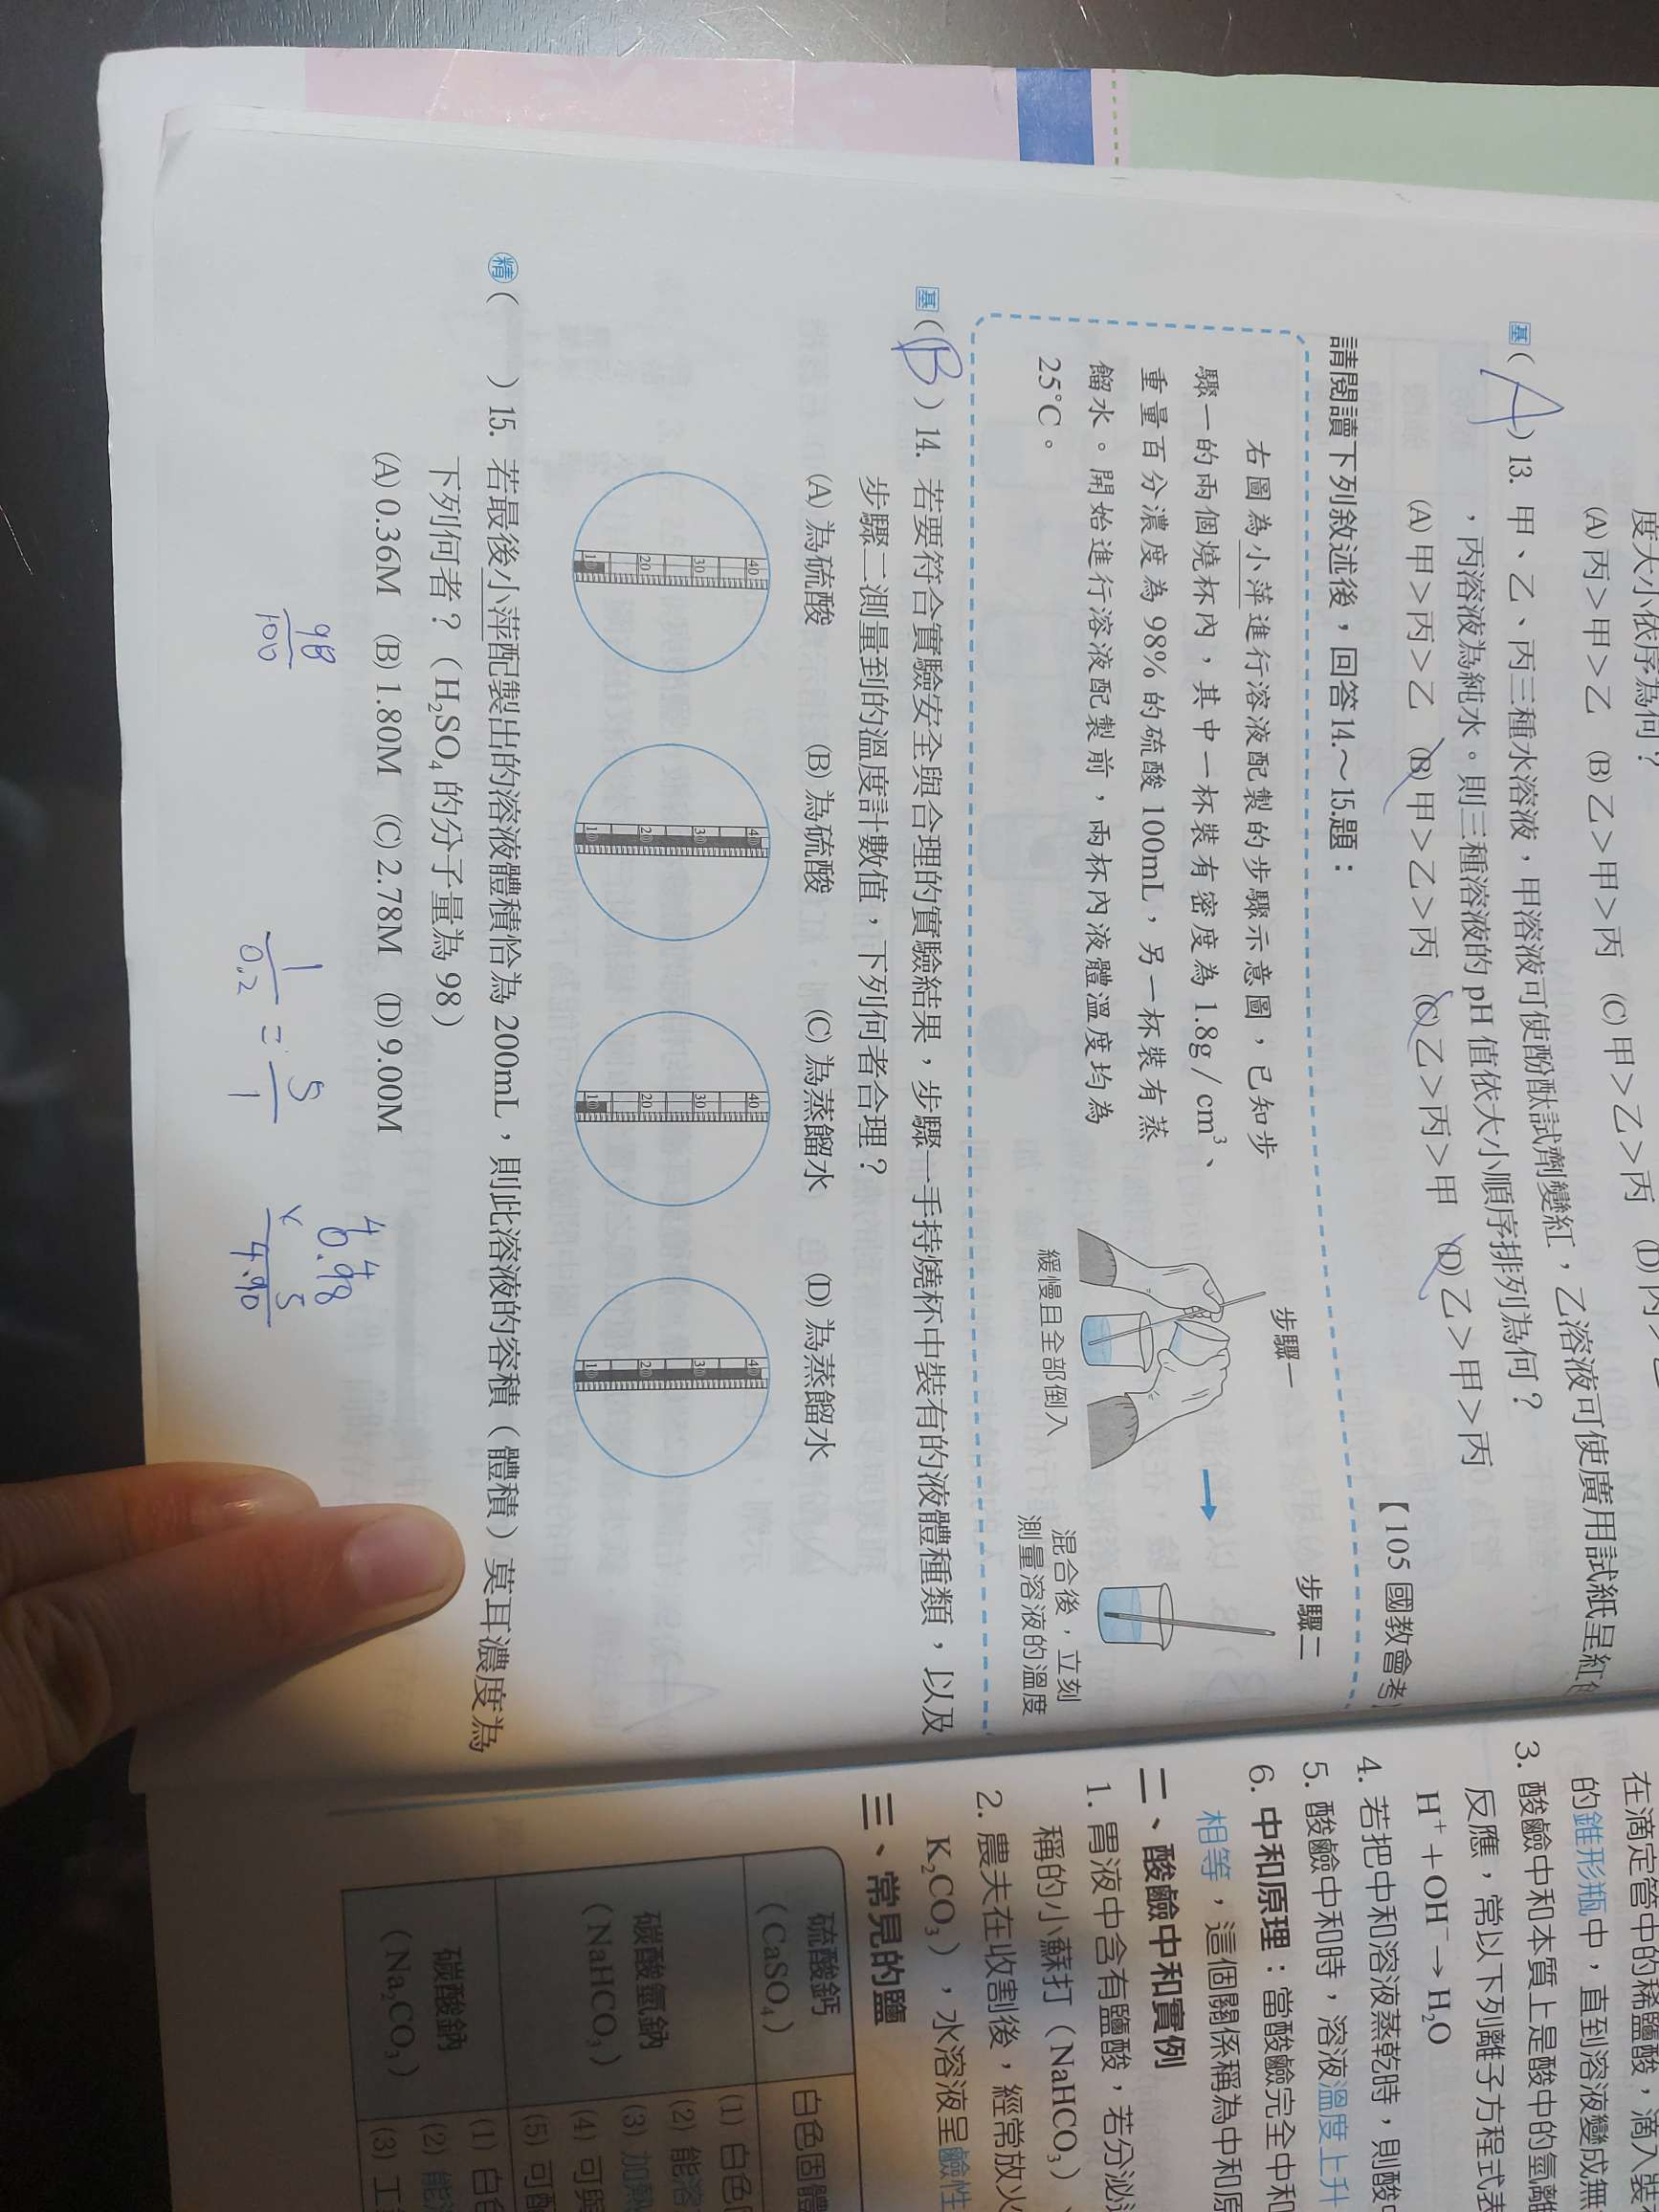 度大小依序為何？
(A)丙＞甲＞乙　(B)乙＞甲＞丙　(C)甲＞乙＞丙　(D)丙＞
基(A)13. 甲、乙、丙三種水溶液，甲溶液可使酚酞試劑變紅，乙溶液可使廣用試紙呈紅
，丙溶液為純水。則三種溶液的pH值依大小順序排列為何？
(A)甲＞丙＞乙　(B)甲＞乙＞丙　(C)乙＞丙＞甲　(D)乙＞甲＞丙
【105國教會考
請閱讀下列敘述後，回答14.～15.題：
右圖為小萍進行溶液配製的步驟示意圖，已知步
驟一的兩個燒杯內，其中一杯裝有密度為1.8g/cm³、
重量百分濃度為98%的硫酸100mL，另一杯裝有蒸
餾水。開始進行溶液配製前，兩杯內液體溫度均為
25°C。
步驟一
緩慢且全部倒入
步驟二
混合後，立刻
測量溶液的溫度
基(B)14. 若要符合實驗安全與合理的實驗結果，步驟一手持燒杯中裝有的液體種類，以及
步驟二測量到的溫度計數值，下列何者合理？
(A)為硫酸　(B)為硫酸　(C)為蒸餾水　(D)為蒸餾水
10 20 30 40
10 20 30 40
10 20 30 40
10 20 30 40
精(　)15. 若最後小萍配製出的溶液體積恰為200mL，則此溶液的容積（體積）莫耳濃度為
下列何者？（H₂SO₄的分子量為98）
(A)0.36M　(B)1.80M　(C)2.78M　(D)9.00M
98
100
1
0.2
=
5
1
4 4
0.98
× 5
4.90
在滴定管中的稀鹽酸，滴入裝
的錐形瓶中，直到溶液變成無
3. 酸鹼中和本質上是酸中的氫離
反應，常以下列離子方程式表
H⁺＋OH⁻→H₂O
4. 若把中和溶液蒸乾時，則酸
5. 酸鹼中和時，溶液溫度上升
6. 中和原理：當酸鹼完全中和
相等，這個關係稱為中和原
二、酸鹼中和實例
1. 胃液中含有鹽酸，若分泌
稱的小蘇打（NaHCO₃）、
2. 農夫在收割後，經常放火
K₂CO₃），水溶液呈鹼性
三、常見的鹽
硫酸鈣
（CaSO₄）
白色固體
碳酸氫鈉
（NaHCO₃）
(1) 白色
(2) 能溶
(3) 加熱
(4) 可與
(5) 可配
碳酸鈉
（Na₂CO₃）
(1) 白色
(2) 能
(3) 工